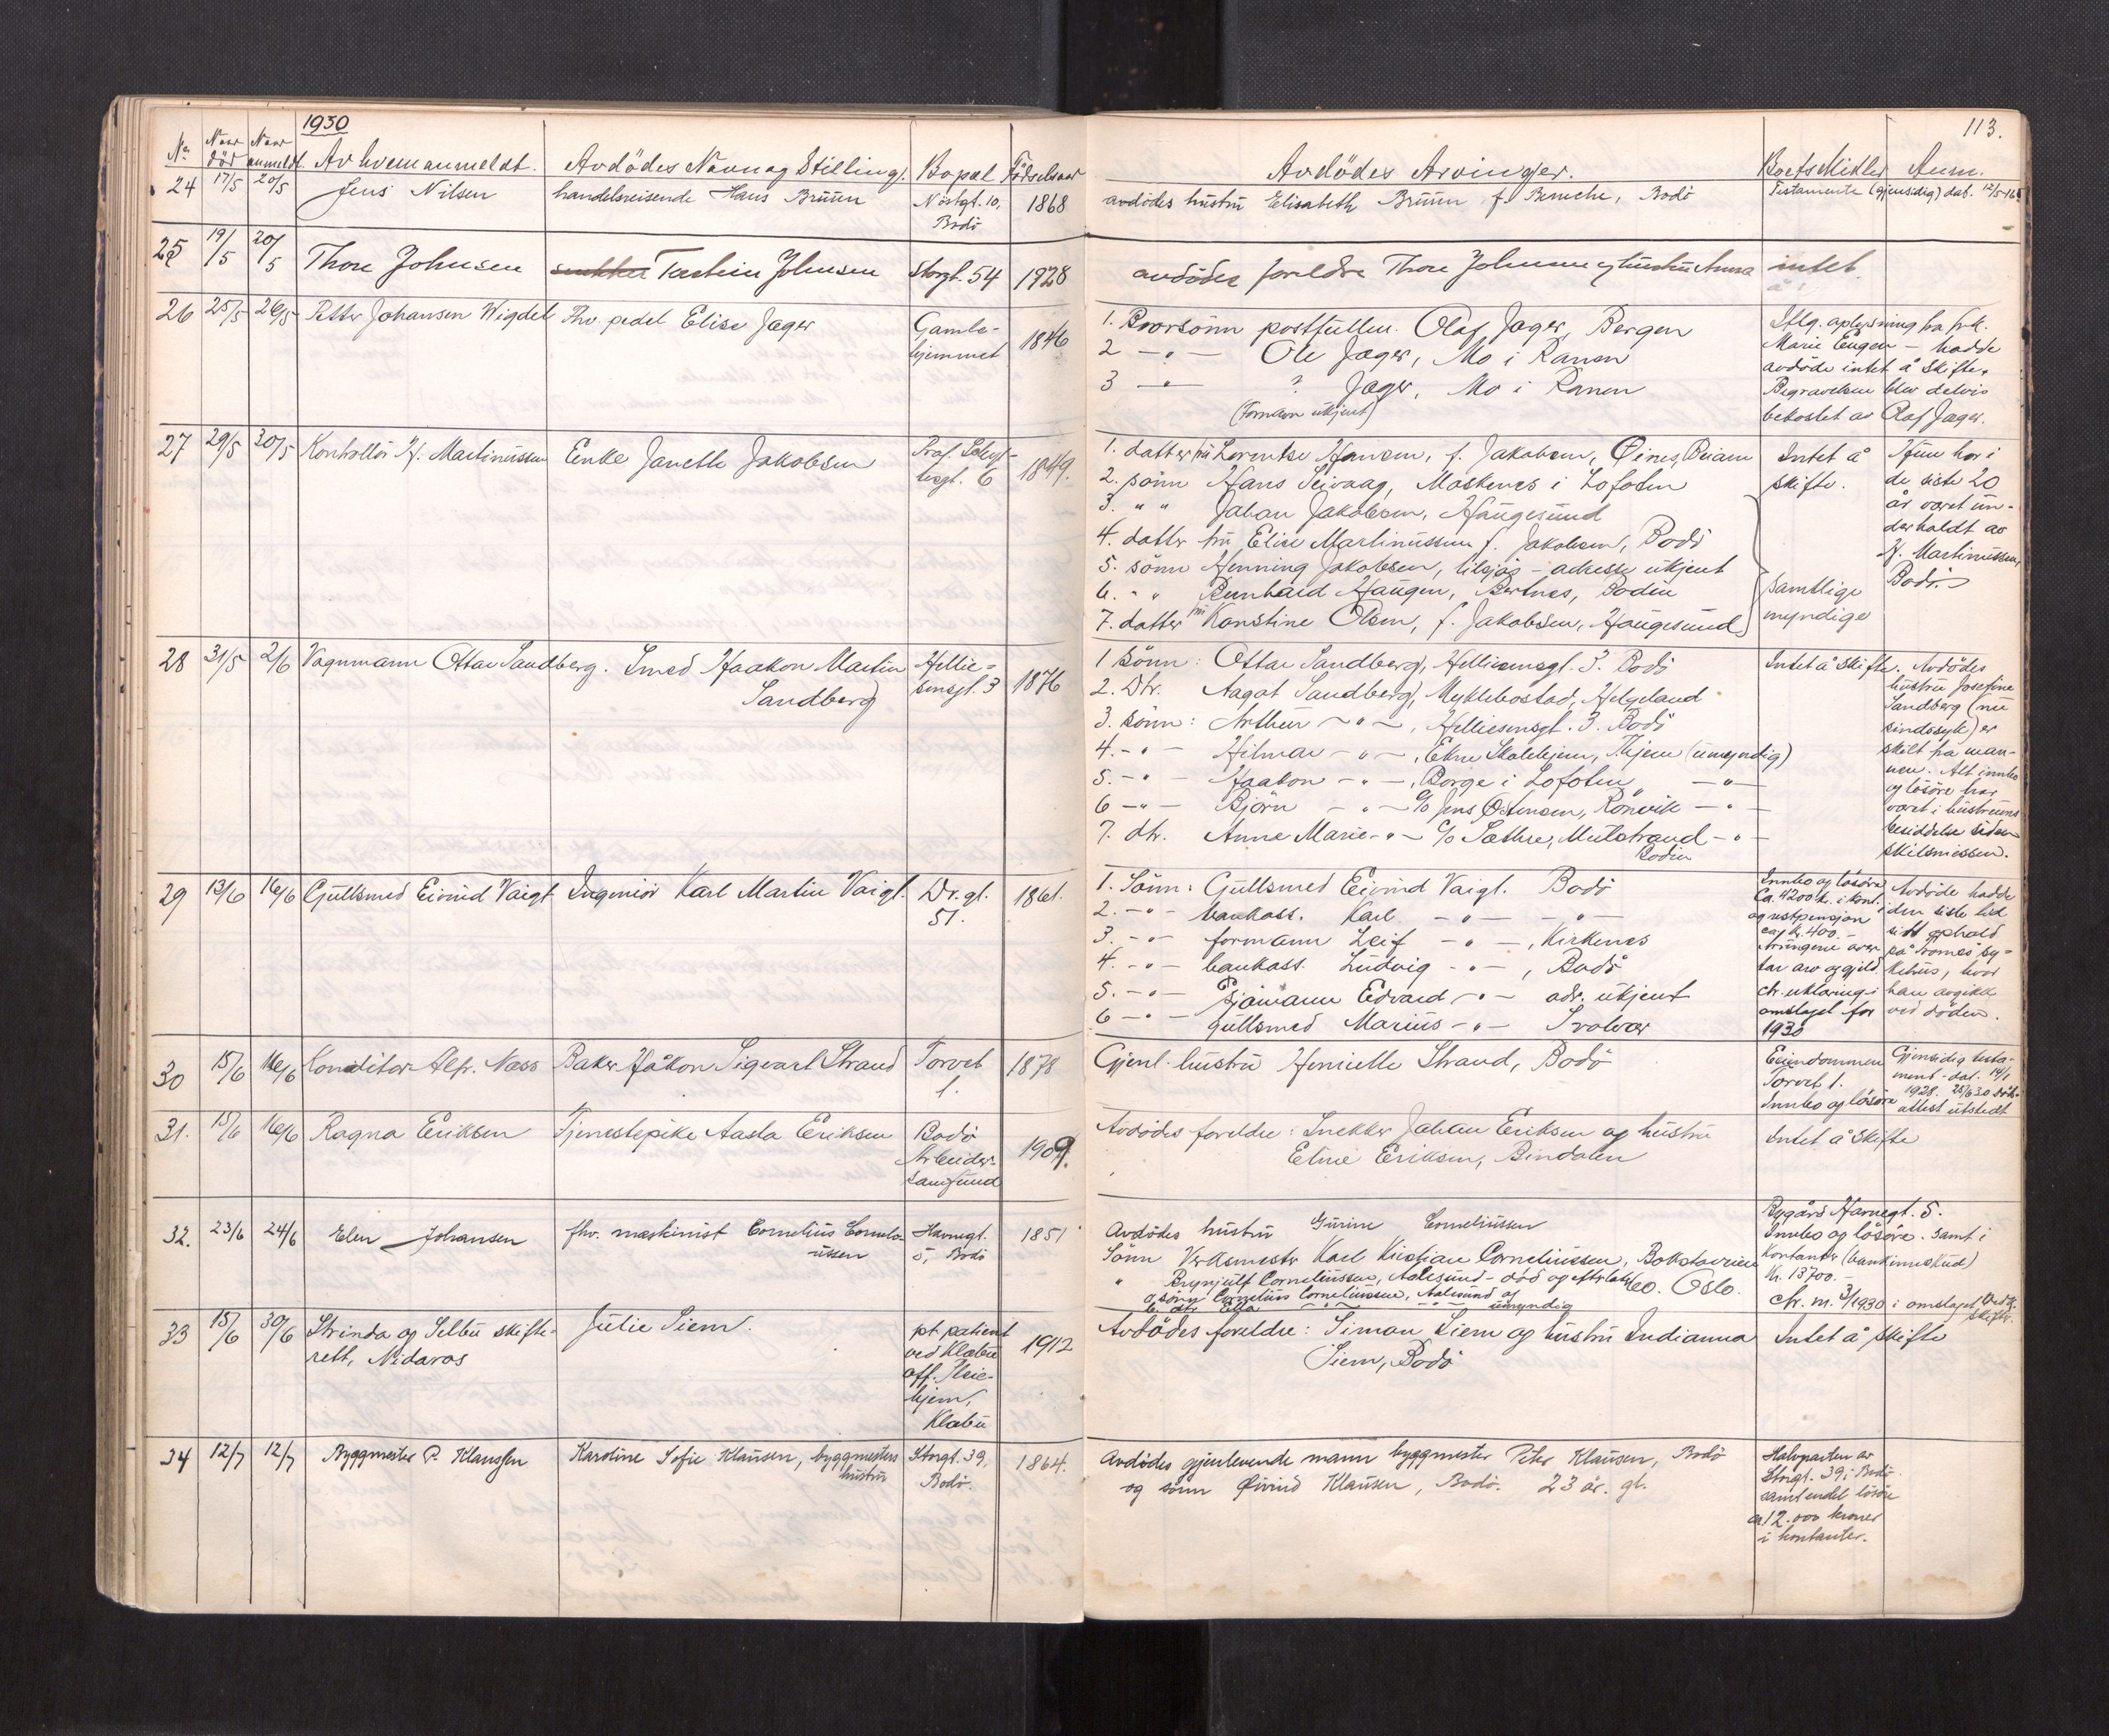 1930
113.
No Naar død Naar anmeldt. Av hvem anmeldt. Avdödes Navn og Stilling. Bopæl Födselsaar Avdödes Arvinger. Boets Midler Anm.
24 17/5 20/5 Jens Nilsen handelsreisende Hans Brüün 1868 avdödes hüstrü Elisabeth Brüün f. Bodö Testamente (gjensidig) dat. 12/5-16
Nöstgt. 10,
Bodö
25 19/5 20/5 Thore Johnsen Torstein Johnsen Storgt. 54 1928 avdödes foreldre Thore Johnsen og hüstrü Anna intet
26 25/5 26/5 Petter Johansen Wigdel Fhv. pedel Elise Jæger Gamle-
hjemmet 1846
1. Brorsönn postfüllm. Olaf Jæger, Bergen
2 —"— Ole Jæger, Mo i Ranen
3 —"— ? Jæger, Mo i Ranen
(Fornavn ükjent)
Iflg. oplysning fra frk.
Marie Eugen – hadde
avdöde intet å skifte.
Begravelsen blev delvis
bekostet av Olaf Jæger.
27 29/5 30/5 Kontrollör H. Martinüssen Enke Janette Jakobsen Prof. Schyt-
tesgt. 6 1849.
1. datter frü Lorentse Hansen, f. Jakobsen, Öines, Beiarn
2. sönn Hans Seivaag, Moskenes i Lofoten
3. " " Johan Jakobsen, Haügesünd
4. datter frü Elise Martinüssen f. Jakobsen, Bodö
5. sönn Henning Jakobsen, tilsjös – adresse ükjent
6. " " Bernhard Haügen, Bertnes, Bodin
7. datter frü Konstine Olsen, f. Jakobsen, Haügesünd
Intet å
skifte.
samtlige
myndige
Hün har i
de siste 20
år været ün-
derholdt av
H. Martinüssen,
Bodö.
28 31/5 2/6 Vognmann Ottar Sandberg. Smed Haakon Martin
Sandberg Hellie-
sensgt. 3 1876
1 Sönn: Ottar Sandberg, Helliesensgt. 3. Bodö
2. Dtr. Aagot Sandberg, Myklebostad, Helgeland
3. sönn: Arthür —"—, Helliesensgt. 3. Bodö
4. —"— Hilmar —"—, Ekne Skolehjem, (ümyndig)
5. —"— Haakon —"—, Borge i Lofoten —"—
6 —"— Björn —"— c/o Jens Östensen, Rönvik —"—
7. dtr. Anne Marie —"— c/o Sæthre, Mulstrand —"—
Bodin
Intet å skifte. Avdödes
hüstrü Josefine
Sandberg (nü
sindssyk) er
skilt fra man-
nen. Alt innbo
og lösöre har
været i hüstrüens
besiddelse siden
skilsmissen.
29 13/6 16/6 Güllsmed Eivind Voigt Ingeniör Karl Martin Voigt. Dr. gt.
51. 1861.
1. Sönn: Güllsmed Eivind Voigt. Bodö
2. —"— bankass. Karl —"— —"—
3. —"— formann Leif —"—, Kirkenes
4. —"— bankass. Lüdvig —"—, Bodö
5. —"— Sjömann Edvard —"— adr. ükjent
6 —"— güllsmed Marius —"— Svolvær
Innbo og lösöre
Ca. 1200 k. i kont.
og restpensjon
ca. kr. 400.-
Arvingene over-
tar arv og gjeld.
cfr. erklæring i
omslaget for
1930
Avdöde hadde
den siste tid
sitt ophold
på Tromsö sy-
kehüs, hvor
han avgikk
ved döden.
30 15/6 16/6 Konditor Alfr. Næss Baker Håkon Sigvart Strand Torvet
1. 1878 Gjenl. hüstrü Henriette Strand, Bodö
Eiendommen
Torvet 1.
Innbo og lösöre
Gjensidig testa-
ment - dat. 14/1
1928. 25/6 30 Skifte-
attest ütstedt
31. 15/6 16/6 Ragna Eriksen Tjenestepike Aasta Eriksen Bodö
Arbeider-
samfund 1909.
Avdödes foreldre: Snekker Johan Eriksen og hüstrü
Eline Eriksen, Bindalen
Intet å skifte
32. 23/6 24/6 Elen Johansen fhv. maskinist Cornelius Corneli-
üssen Havnegt.
5, Bodö 1851
Avdödes hüstrü Gürine Corneliüssen
Sönn Verksmester Karl Kristian Corneliüssen, Bokstaveien
" Brynjülf Corneliüssen, Aalesünd - död og efterlater 60. Oslo.
a. sönn Cornelius Corneliüssen, Aalesünd og
b. dtr Ella —"— —"— ümyndig
Bygård Havnegt. 5.
Innbo og lösöre. samt i
kontanter (bankinnskudd)
kr. 13700.-
cfr. m. 3/1930 i omslaget
33 15/6 30/6 Strinda og Selbu skifte-
rett, Nidaros Jülie Siem. pt. patient
ved Klæbü
off. Pleie-
hjem,
Klæbü 1912
Avdödes foreldre: Simon Siem og hüstrü Indianna
Siem, Bodö
Intet å skifte
34 12/7 12/7 Byggmester P. Klaussen Karoline Sofie Klaüsen, byggmesters
hüstrü Storgt. 39,
Bodö. 1864.
Avdödes gjenlevende mann byggmester Peter Klaüsen, Bodö
og sönn Øivind Klaüsen, Bodö. 23 år. gl.
Halvparten av
Storgt. 39 i Bodö
samt endel lösöre
ca. 12.000 kroner
i kontanter.